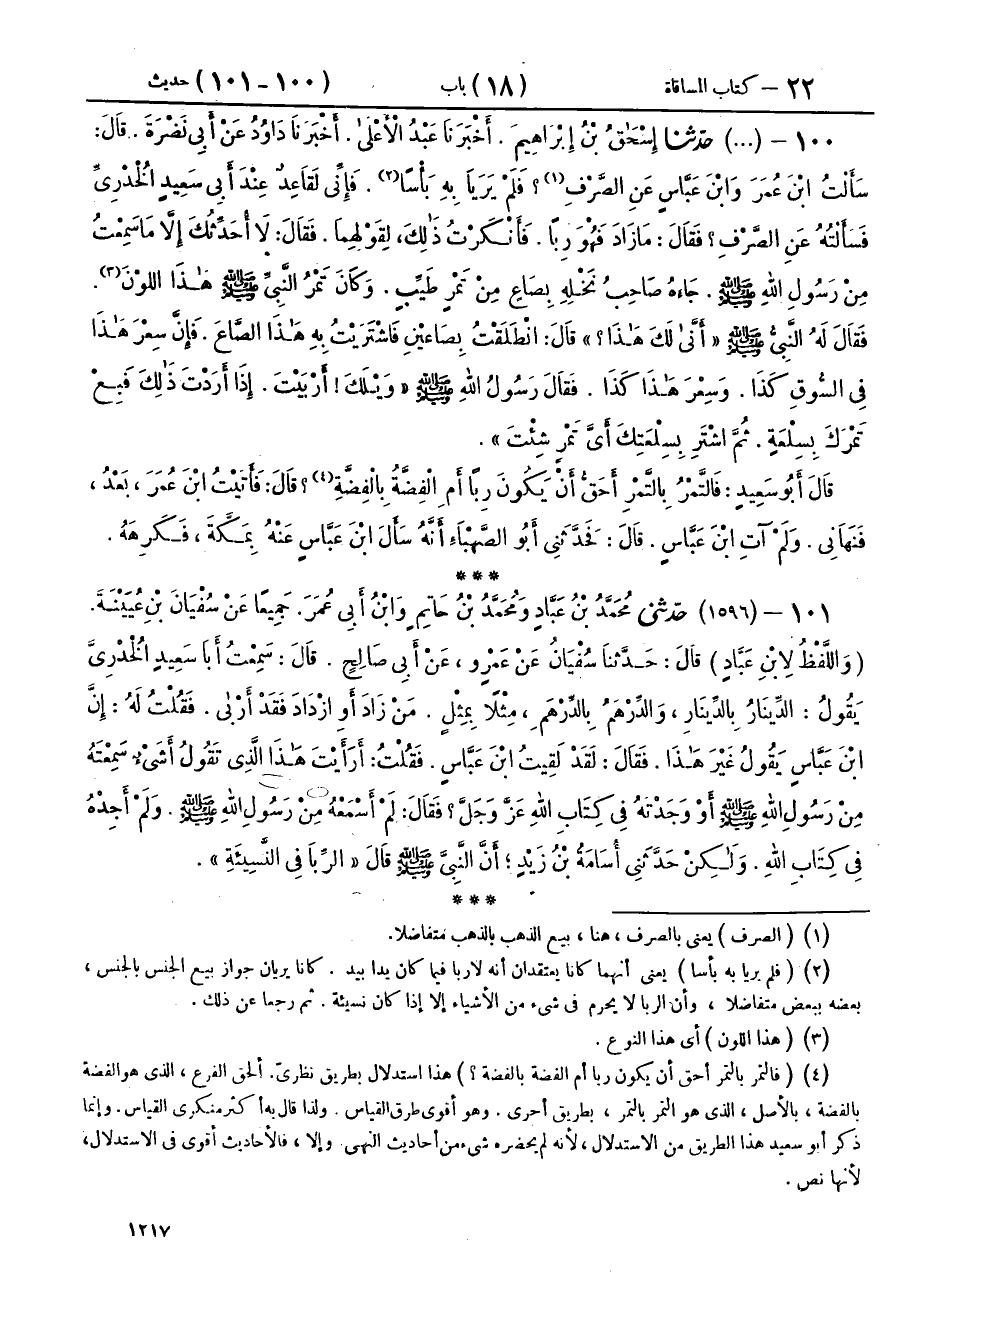 ٢٢ – كتاب المساقاة (١٨) باب (١٠٠ – ١٠١) حديث
١٠٠ – (...) حدّثنا إِسْحَٰقُ بْنُ إِبْرَاهِيمَ. أَخْبَرَنَا عَبْدُ الْأَعْلَىٰ. أَخْبَرَنَا دَاوُدُ عَنْ أَبِي نَضْرَةَ. قَالَ:
سَأَلْتُ ابْنَ عُمَرَ وَابْنَ عَبَّاسٍ عَنِ الصَّرْفِ(١)؟ فَلَمْ يَرَيَا بِهِ بَأْسًا(٢). فَإِنِّي لَقَاعِدٌ عِنْدَ أَبِي سَعِيدٍ الْخُدْرِيِّ
فَسَأَلْتُهُ عَنِ الصَّرْفِ؟ فَقَالَ: مَا زَادَ فَهُوَ رِبًا. فَأَنْكَرْتُ ذَٰلِكَ، لِقَوْلِهِمَا. فَقَالَ: لَا أُحَدِّثُكَ إِلَّا مَا سَمِعْتُ
مِنْ رَسُولِ اللهِ ﷺ. جَاءَهُ صَاحِبُ نَخْلِهِ بِصَاعٍ مِنْ تَمْرٍ طَيِّبٍ. وَكَانَ تَمْرُ النَّبِيِّ ﷺ هَٰذَا اللَّوْنَ(٣).
فَقَالَ لَهُ النَّبِيُّ ﷺ «أَنَّىٰ لَكَ هَٰذَا؟» قَالَ: انْطَلَقْتُ بِصَاعَيْنِ فَاشْتَرَيْتُ بِهِ هَٰذَا الصَّاعَ. فَإِنَّ سِعْرَ هَٰذَا
فِي السُّوقِ كَذَا. وَسِعْرَ هَٰذَا كَذَا. فَقَالَ رَسُولُ اللهِ ﷺ «وَيْلَكَ! أَرْبَيْتَ. إِذَا أَرَدْتَ ذَٰلِكَ فَبِعْ
تَمْرَكَ بِسِلْعَةٍ. ثُمَّ اشْتَرِ بِسِلْعَتِكَ أَيَّ تَمْرٍ شِئْتَ».
قَالَ أَبُو سَعِيدٍ: فَالتَّمْرُ بِالتَّمْرِ أَحَقُّ أَنْ يَكُونَ رِبًا أَمِ الْفِضَّةُ بِالْفِضَّةِ(٤)؟ قَالَ: فَأَتَيْتُ ابْنَ عُمَرَ، بَعْدُ،
فَنَهَانِي. وَلَمْ آتِ ابْنَ عَبَّاسٍ. قَالَ: فَحَدَّثَنِي أَبُو الصَّهْبَاءِ أَنَّهُ سَأَلَ ابْنَ عَبَّاسٍ عَنْهُ بِمَكَّةَ، فَكَرِهَهُ.
***
١٠١ – (١٥٩٦) حدّثني مُحَمَّدُ بْنُ عَبَّادٍ وَمُحَمَّدُ بْنُ حَاتِمٍ وَابْنُ أَبِي عُمَرَ. جَمِيعًا عَنْ سُفْيَانَ بْنِ عُيَيْنَةَ.
(وَاللَّفْظُ لِابْنِ عَبَّادٍ) قَالَ: حَدَّثَنَا سُفْيَانُ عَنْ عَمْرٍو، عَنْ أَبِي صَالِحٍ. قَالَ: سَمِعْتُ أَبَا سَعِيدٍ الْخُدْرِيَّ
يَقُولُ: الدِّينَارُ بِالدِّينَارِ، وَالدِّرْهَمُ بِالدِّرْهَمِ، مِثْلًا بِمِثْلٍ. مَنْ زَادَ أَوِ ازْدَادَ فَقَدْ أَرْبَىٰ. فَقُلْتُ لَهُ: إِنَّ
ابْنَ عَبَّاسٍ يَقُولُ غَيْرَ هَٰذَا. فَقَالَ: لَقَدْ لَقِيتُ ابْنَ عَبَّاسٍ. فَقُلْتُ: أَرَأَيْتَ هَٰذَا الَّذِي تَقُولُ أَشَيْءٌ سَمِعْتَهُ
مِنْ رَسُولِ اللهِ ﷺ أَوْ وَجَدْتَهُ فِي كِتَابِ اللهِ عَزَّ وَجَلَّ؟ فَقَالَ: لَمْ أَسْمَعْهُ مِنْ رَسُولِ اللهِ ﷺ. وَلَمْ أَجِدْهُ
فِي كِتَابِ اللهِ. وَلَٰكِنْ حَدَّثَنِي أُسَامَةُ بْنُ زَيْدٍ؛ أَنَّ النَّبِيَّ ﷺ قَالَ «الرِّبَا فِي النَّسِيئَةِ».
***
(١) (الصرف) يعنى بالصرف، هنا، بيع الذهب بالذهب متفاضلا.
(٢) (فلم يريا به بأسا) يعنى أنهما كانا يعتقدان أنه لا ربا فيما كان يدا بيد. كانا يريان جواز بيع الجنس بالجنس،
بعضه ببعض متفاضلا، وأن الربا لا يحرم فى شىء من الأشياء إلا إذا كان نسيئة. ثم رجعا عن ذلك.
(٣) (هذا اللون) أى هذا النوع.
(٤) (فالتمر بالتمر أحق أن يكون ربا أم الفضة بالفضة؟) هذا استدلال بطريق نظرىّ. ألحق الفرع، الذى هو الفضة
بالفضة، بالأصل، الذى هو التمر بالتمر، بطريق أحرى. وهو أقوى طرق القياس. ولذا قال به أكثر منكرى القياس. وإنما
ذكر أبو سعيد هذا الطريق من الاستدلال، لأنه لم يحضره شىء من أحاديث النهى. وإلا، فالأحاديث أقوى فى الاستدلال،
لأنها نص.
١٢١٧